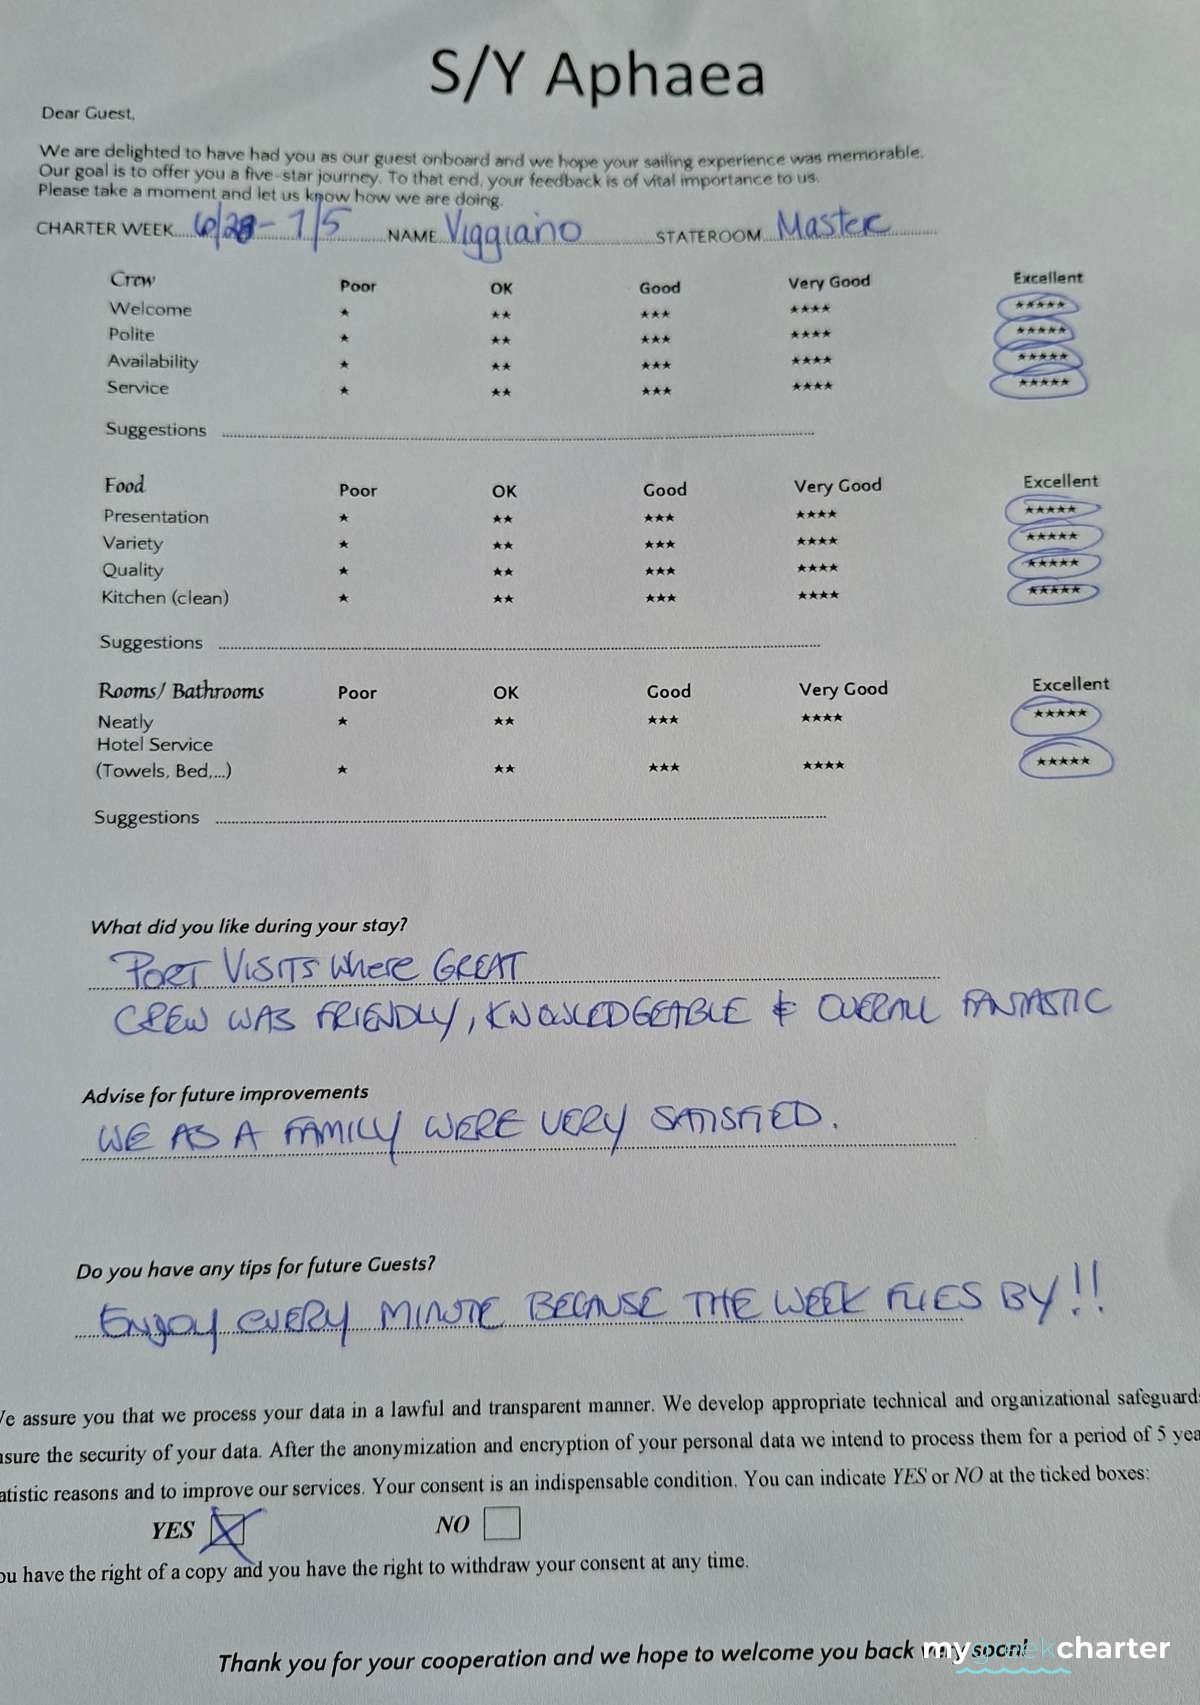 S/Y Aphaea
Dear Guest,
We are delighted to have had you as our guest onboard and we hope your sailing experience was memorable.
Our goal is to offer you a five-star journey. To that end, your feedback is of vital importance to us.
Please take a moment and let us know how we are doing.
CHARTER WEEK 6/28 - 7/5 NAME Viggiano STATEROOM Master
Crew Poor OK Good Very Good Excellent
Welcome ★ ★★ ★★★ ★★★★ ★★★★★
Polite ★ ★★ ★★★ ★★★★ ★★★★★
Availability ★ ★★ ★★★ ★★★★ ★★★★★
Service ★ ★★ ★★★ ★★★★ ★★★★★
Suggestions
Food Poor OK Good Very Good Excellent
Presentation ★ ★★ ★★★ ★★★★ ★★★★★
Variety ★ ★★ ★★★ ★★★★ ★★★★★
Quality ★ ★★ ★★★ ★★★★ ★★★★★
Kitchen (clean) ★ ★★ ★★★ ★★★★ ★★★★★
Suggestions
Rooms/ Bathrooms Poor OK Good Very Good Excellent
Neatly ★ ★★ ★★★ ★★★★ ★★★★★
Hotel Service
(Towels, Bed,...) ★ ★★ ★★★ ★★★★ ★★★★★
Suggestions
What did you like during your stay?
PORT VISITS Where GREAT
CREW WAS FRIENDLY, KNOWLEDGEABLE & OVERALL FANTASTIC
Advise for future improvements
WE AS A FAMILY WERE VERY SATISFIED.
Do you have any tips for future Guests?
ENJOY EVERY MINUTE BECAUSE THE WEEK FLIES BY!!
We assure you that we process your data in a lawful and transparent manner. We develop appropriate technical and organizational safeguards
nsure the security of your data. After the anonymization and encryption of your personal data we intend to process them for a period of 5 yea
atistic reasons and to improve our services. Your consent is an indispensable condition. You can indicate YES or NO at the ticked boxes:
YES NO
ou have the right of a copy and you have the right to withdraw your consent at any time.
Thank you for your cooperation and we hope to welcome you back very soon!
mygreekcharter